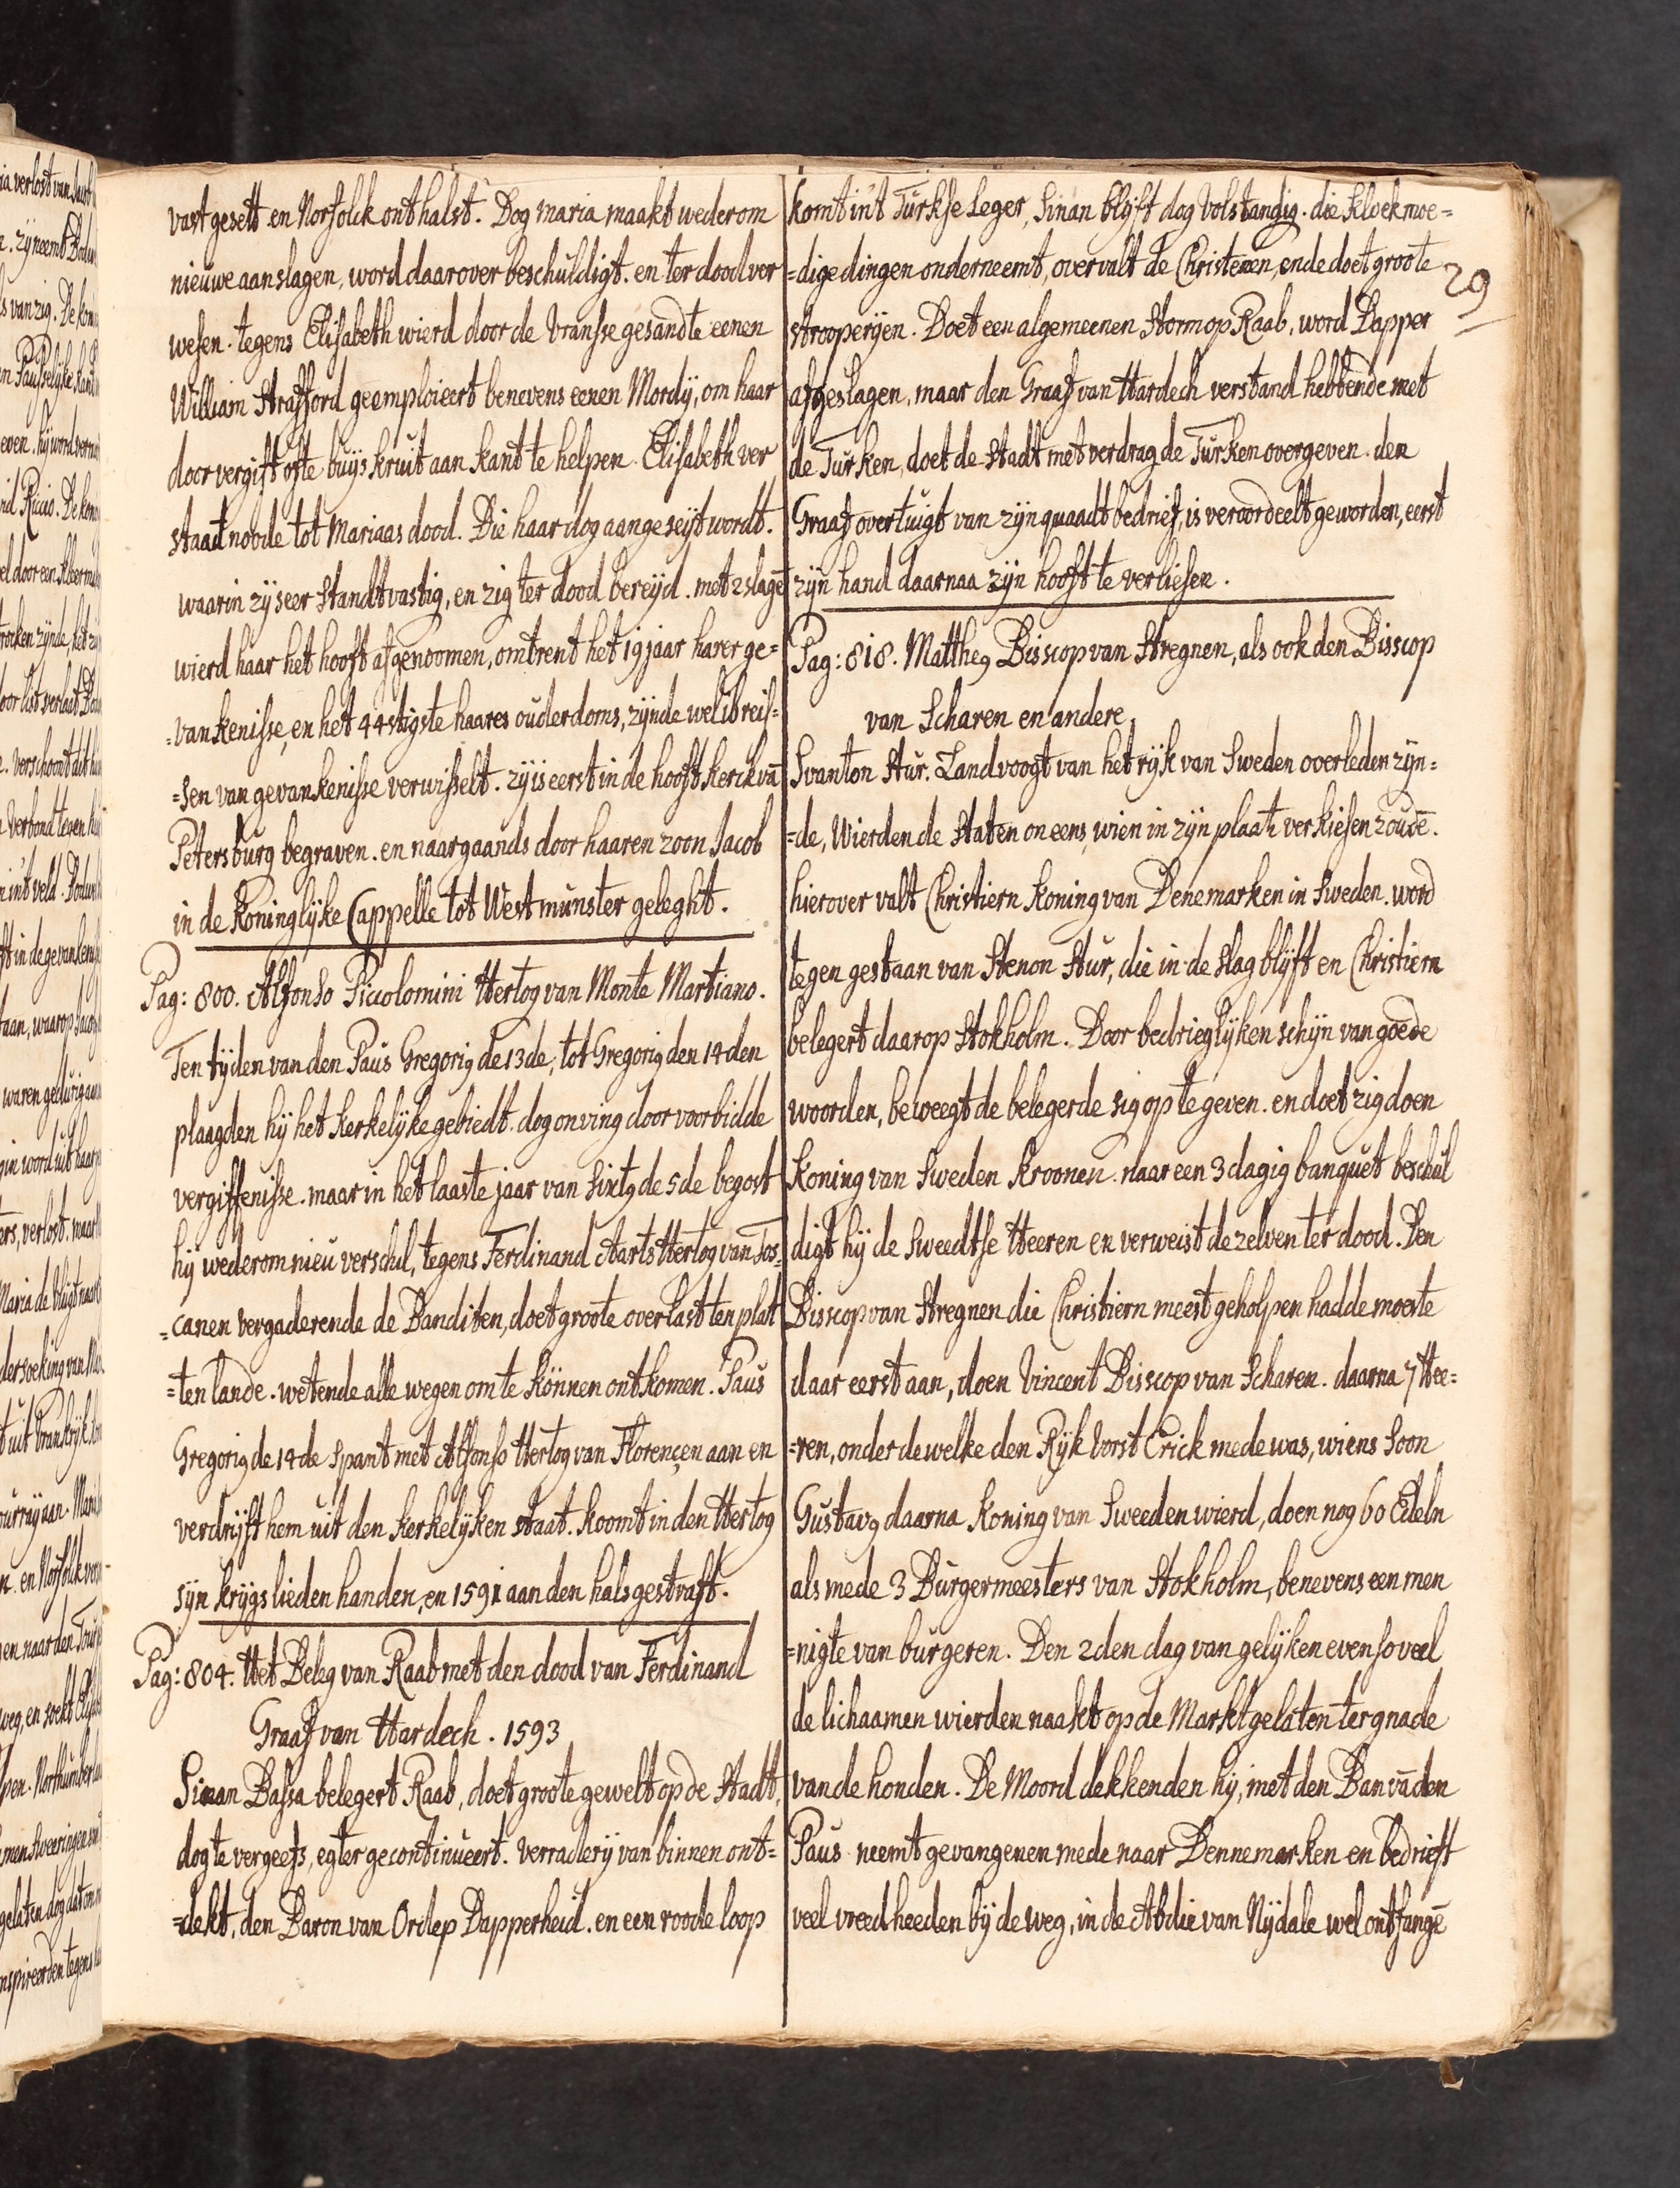 vast gesett en Norfolck onthalst. Dog maria maakt wederom
nieuwe aanslagen, word daarover beschuldigt. en ter dood ver
wesen. tegens Elisabeth wierd door de Vransse gesandte eenen
William Strafford geemploieert benevens eenen Mordÿ, om haar
door vergift ofte buijskruit aan kant te helpen. Elisabeth ver
staat noode tot Mariaas dood. Die haar dog aangeseijt wordt.
waarin zÿ seer standtvastig, en zig ter dood bereÿd. met 2 slagē
wierd haar het hooft afgenoomen, omtrent het 19 jaar harer ge=
=vankenisse, en het 44stigste haares ouderdoms, zÿnde wel 16 reis=
=sen van gevankenisse verwisselt. zÿ is eerst in de hooft kerck vā
Petersburg begraven. en naargaands door haaren zoon Jacob
in de Koninglÿke Cappelle tot Westmunster geleght.
Pag: 800. Alfonso Piccolomini Hertog van Monte Martiano.
Ten tÿden van den Paus Gregoriꝰ de 13de, tot Gregoriꝰ den 14den
plaagden hÿ het kerkelÿke gebiedt. dog onving door voorbidde
vergiffenisse. maar in het laaste jaar van Sixtꝰ de 5de begost
hÿ wederom nieu verschil, tegens Ferdinand Aarts Hertog van Tos=
=canen vergaderende de Banditen, doet groote overlast ten plat
=ten lande. wetende alle wegen om te können ontkomen. Paus
Gregoriꝰ de 14de spant met Alfonso Hertog van Florençen aan en
verdrÿft hem uit den kerkelÿken staat. koomt in den Hertog
sÿn krÿgslieden handen, en 1591 aan den hals gestraft.
Pag: 804. Het Beleg van Raab met den dood van Ferdinand
Graaf van Hardech. 1593
Sinan Bassa belegert Raab, doet groote gewelt op de Stadt,
dog te vergeefs, egter gecontinueert. verraderÿ van binnen ont=
=dekt, den Baron van Ordep Dapperheid. en een roode loop
komt in't Turkse Leger, Sinan blÿft dog volstandig. die kloekmoe=
=dige dingen onderneemt, overvalt de Christenen, ende doet groote
29
strooperÿen. Doet een algemeenen storm op Raab, word Dapper
afgeslagen, maar den Graaf van Hardech verstand hebbende met
de Turken, doet de Stadt met verdrag de Turken overgeven. den
Graaf overtuigt van zÿn quaadt bedrief, is veroordeelt geworden, eerst
zÿn hand daarnaa zÿn hooft te verliesen.
Pag: 818. Mattheꝰ Bisscop van Stregnen, als ook den Bisscop
van Scharen en andere
Svanton Stur. Landvoogt van het rÿk van Sweden overleden zÿn=
=de, wierden de Staten oneens, wien in zÿn plaats verkiesen zoudē.
hierover valt Christiern Koning van Denemarken in Sweden. word
tegen gestaan van Stenon Stur, die in de slag blÿft en Christiern
belegert daarop Stokholm. Door bedrieglÿken schÿn van goede
woorden, beweegt de belegerde sig op te geven. en doet zig doen
Koning van Sweden Kroonen. naar een 3 dagig banquet beschul
digt hÿ de Sweedtse Heeren en verweist de zelven ter dood. Den
Bisscop van Stregnen die Christiern meest geholpen hadde moeste
daar eerst aan, doen Vincent Bisscop van Scharen. daarna 7 Hee=
=ren, onder dewelke den Rÿk Vorst Erick mede was, wiens Soon
Gustavꝰ daarna Koning van Sweeden wierd, doen nog 60 Edeln
als mede 3 Burgermeesters van Stokholm, benevens een men
=nigte van burgeren. Den 2den dag van gelÿken even so veel
de lichaamen wierden naakt op de Markt gelaten ter gnade
van de honden. De Moord dekkenden hÿ, met den Ban vā den
Paus neemt gevangenen mede naar Dennemarken en bedrieft
veel vreedheeden bÿ de weg, in de Abdie van Nÿdale wel ontfangē